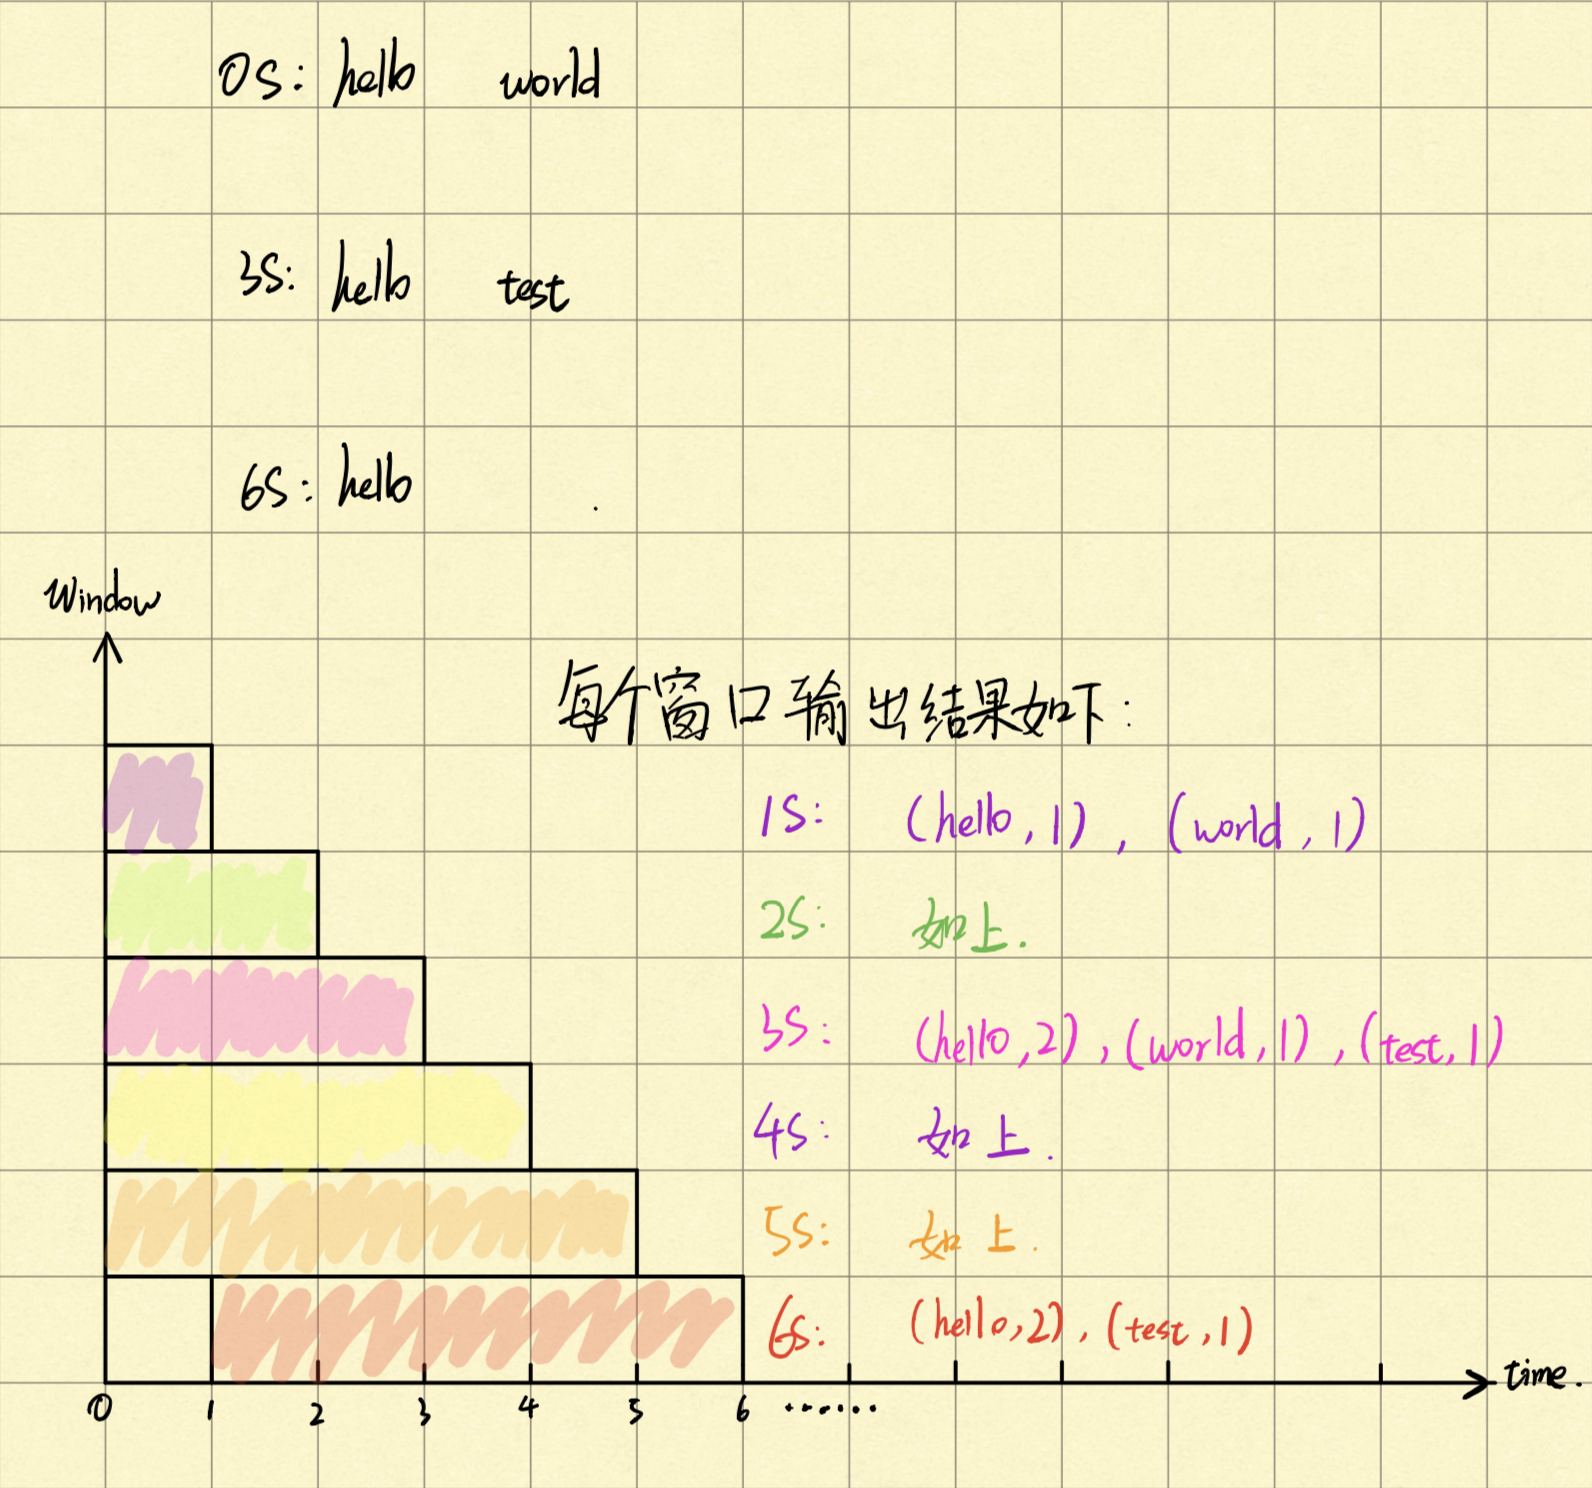 0S: hello world
3S: hello test
6S: hello
Window
每个窗口输出结果如下:
1S: (hello, 1), (world, 1)
2S: 如上.
3S: (hello, 2), (world, 1), (test, 1)
4S: 如上.
5S: 如上.
6S: (hello, 2), (test, 1)
time.
0 1 2 3 4 5 6 ......